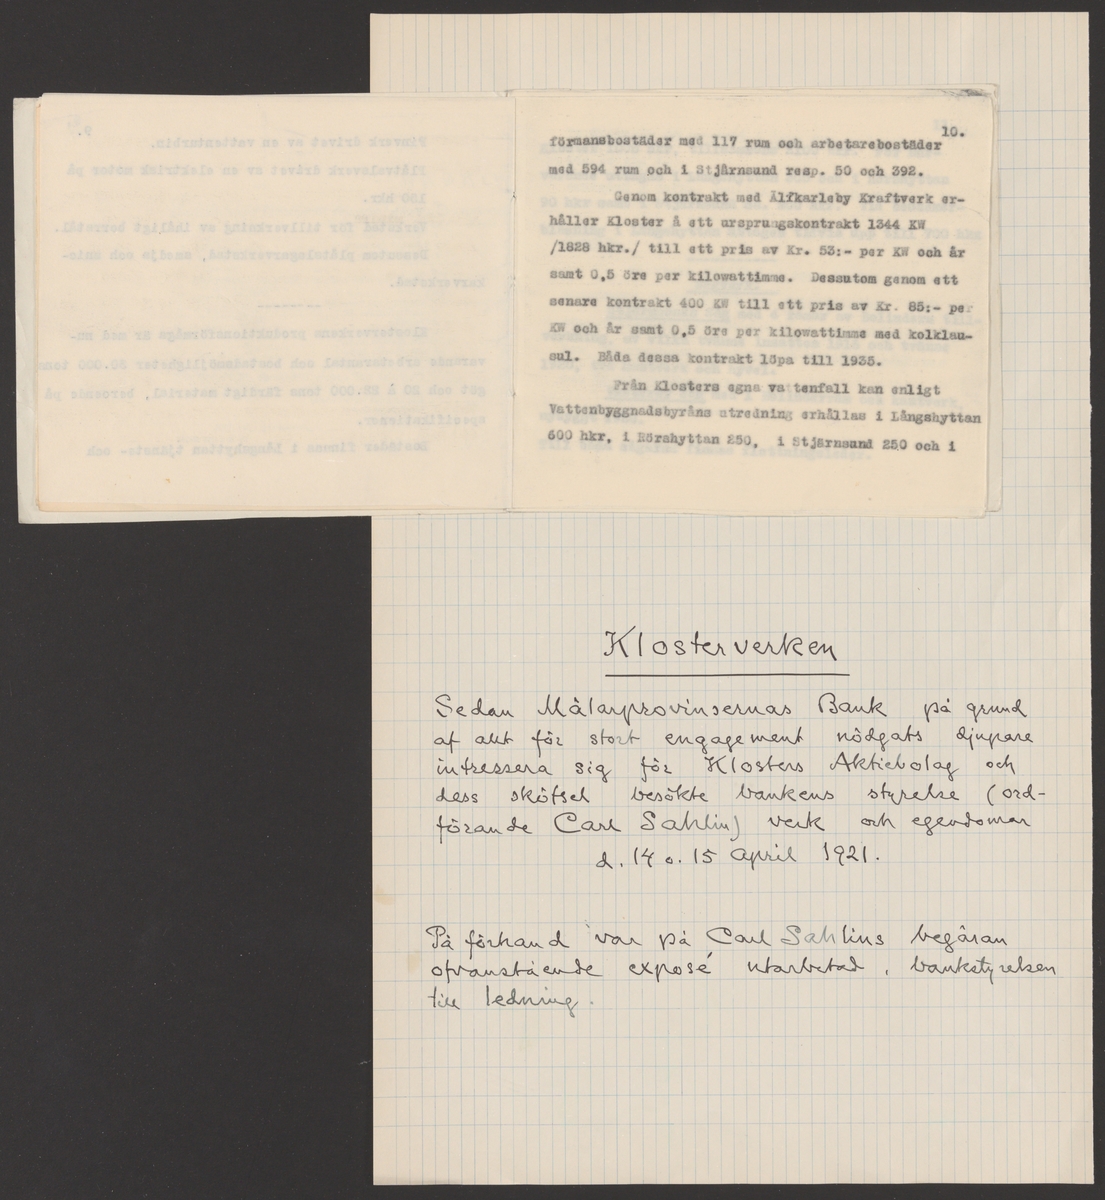 10.
förmansbostäder med 117 rum och arbetarebostäder
med 594 rum och i Stjärnsund resp. 50 och 392.
Genom kontrakt med Älfkarleby Kraftverk er-
håller Kloster Å ett ursprungskontrakt 1344 KW
/1828 hkr./ till ett pris av Kr. 53:- per KW och år
samt 0,5 öre per kilowattimme. Dessutom genom ett
senare kontrakt 400 KW till ett pris av Kr. 85:- per
KW och år samt 0,5 öre per kilowattimme med kolklau-
sul. Båda dessa kontrakt löpa till 1935.
Från Klosters egna vattenfall kan enligt
Vattenbyggnadsbyråns utredning erhållas i Långshyttan
600 hkr, i Rörshyttan 250, i Stjärnsund 250 och i
9.
Finverk drivet av en vattenturbin.
Plåtvalsverk drivet av en elektrisk motor på
150 hkr.
Verkstad för tillverkning av ihåligt borrstål.
Dessutom plåtslagarverkstad, smedja och snic-
karverkstad.
--------
Klosterverkens produktionsförmåga är med nu-
varande arbetarantal och bostadsmöjligheter 30.000 tons
göt och 20 à 25.000 tons färdigt material, beroende på
specifikationer.
Bostäder finnas i Långshyttan tjänste- och
Klosterverken
Sedan Mälarprovinsernas Bank på grund
af allt för stort engagement nödgats djupare
intressera sig för Klosters Aktiebolag och
dess skötsel besökte bankens styrelse (ord-
förande Carl Sahlin) verk och egendomar
d. 14 o. 15 April 1921.
På förhand var på Carl Sahlins begäran
ofvanstående exposé utarbetad, bankstyrelsen
till ledning.